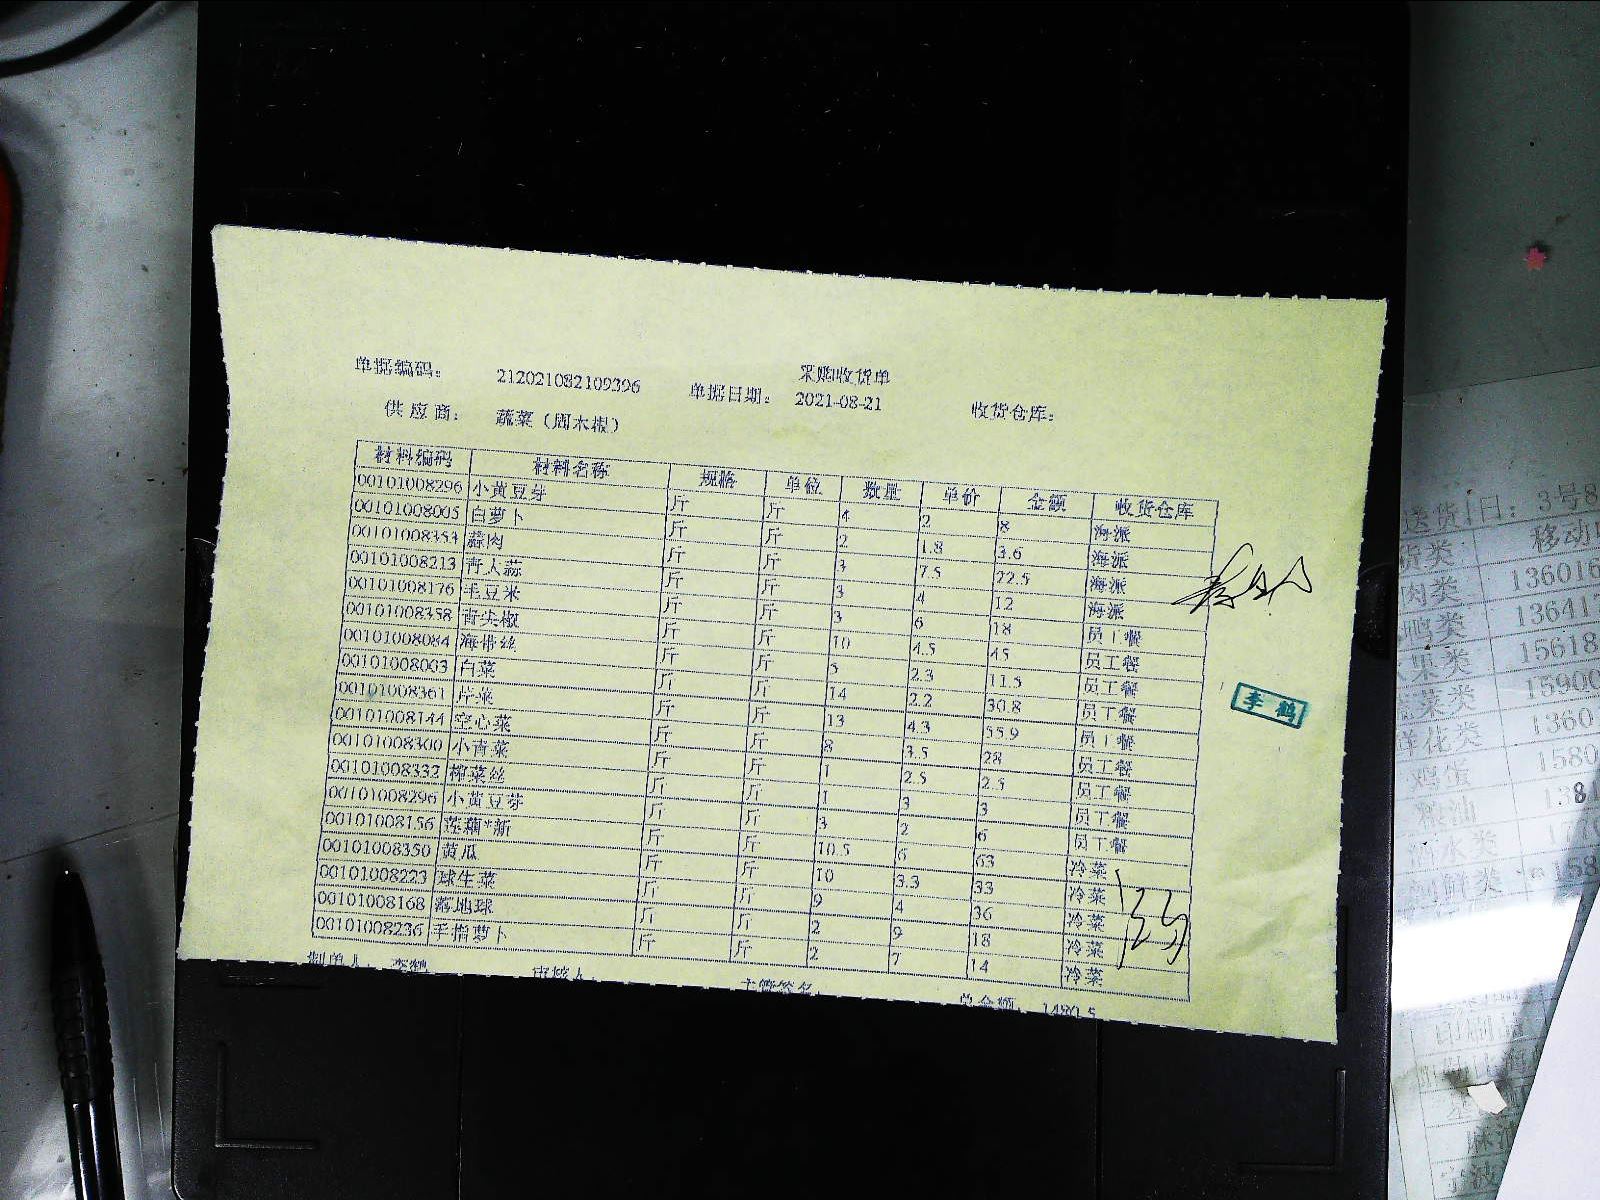 采购收货单
单据编码： 212021082109396 单据日期： 2021-08-21 收货仓库：
供应商： 蔬菜（周木根）
材料编码 材料名称 规格 单位 数量 单价 金额 收货仓库
00101008296 小黄豆芽 斤 斤 4 2 8 海派
00101008005 白萝卜 斤 斤 2 1.8 3.6 海派
00101008353 蒜肉 斤 斤 3 7.5 22.5 海派
00101008213 青大蒜 斤 斤 3 4 12 海派
00101008176 毛豆米 斤 斤 3 6 18 员工餐
00101008358 青尖椒 斤 斤 10 4.5 45 员工餐
00101008084 海带丝 斤 斤 5 2.3 11.5 员工餐
00101008003 白菜 斤 斤 14 2.2 30.8 员工餐
00101008361 芹菜 斤 斤 13 4.3 55.9 员工餐
00101008144 空心菜 斤 斤 8 3.5 28 员工餐
00101008300 小青菜 斤 斤 1 2.5 2.5 员工餐
00101008332 榨菜丝 斤 斤 1 3 3 员工餐
00101008296 小黄豆芽 斤 斤 3 2 6 员工餐
00101008156 莲藕*新 斤 斤 10.5 6 63 冷菜
00101008350 黄瓜 斤 斤 10 3.3 33 冷菜
00101008223 球生菜 斤 斤 9 4 36 冷菜
00101008168 落地球 斤 斤 2 9 18 冷菜
00101008236 手指萝卜 斤 斤 2 7 14 冷菜
制单人： 李鹤 审核人： 主管签名： 总金额：
李鹤
送货 日：3号8
货类 移动
肉类 136016
鸭类 13641
果类 15618
菜类 15900
洋化类 1360
鸡蛋 1580
粮油 1381
水类
鲜类 158
印刷品